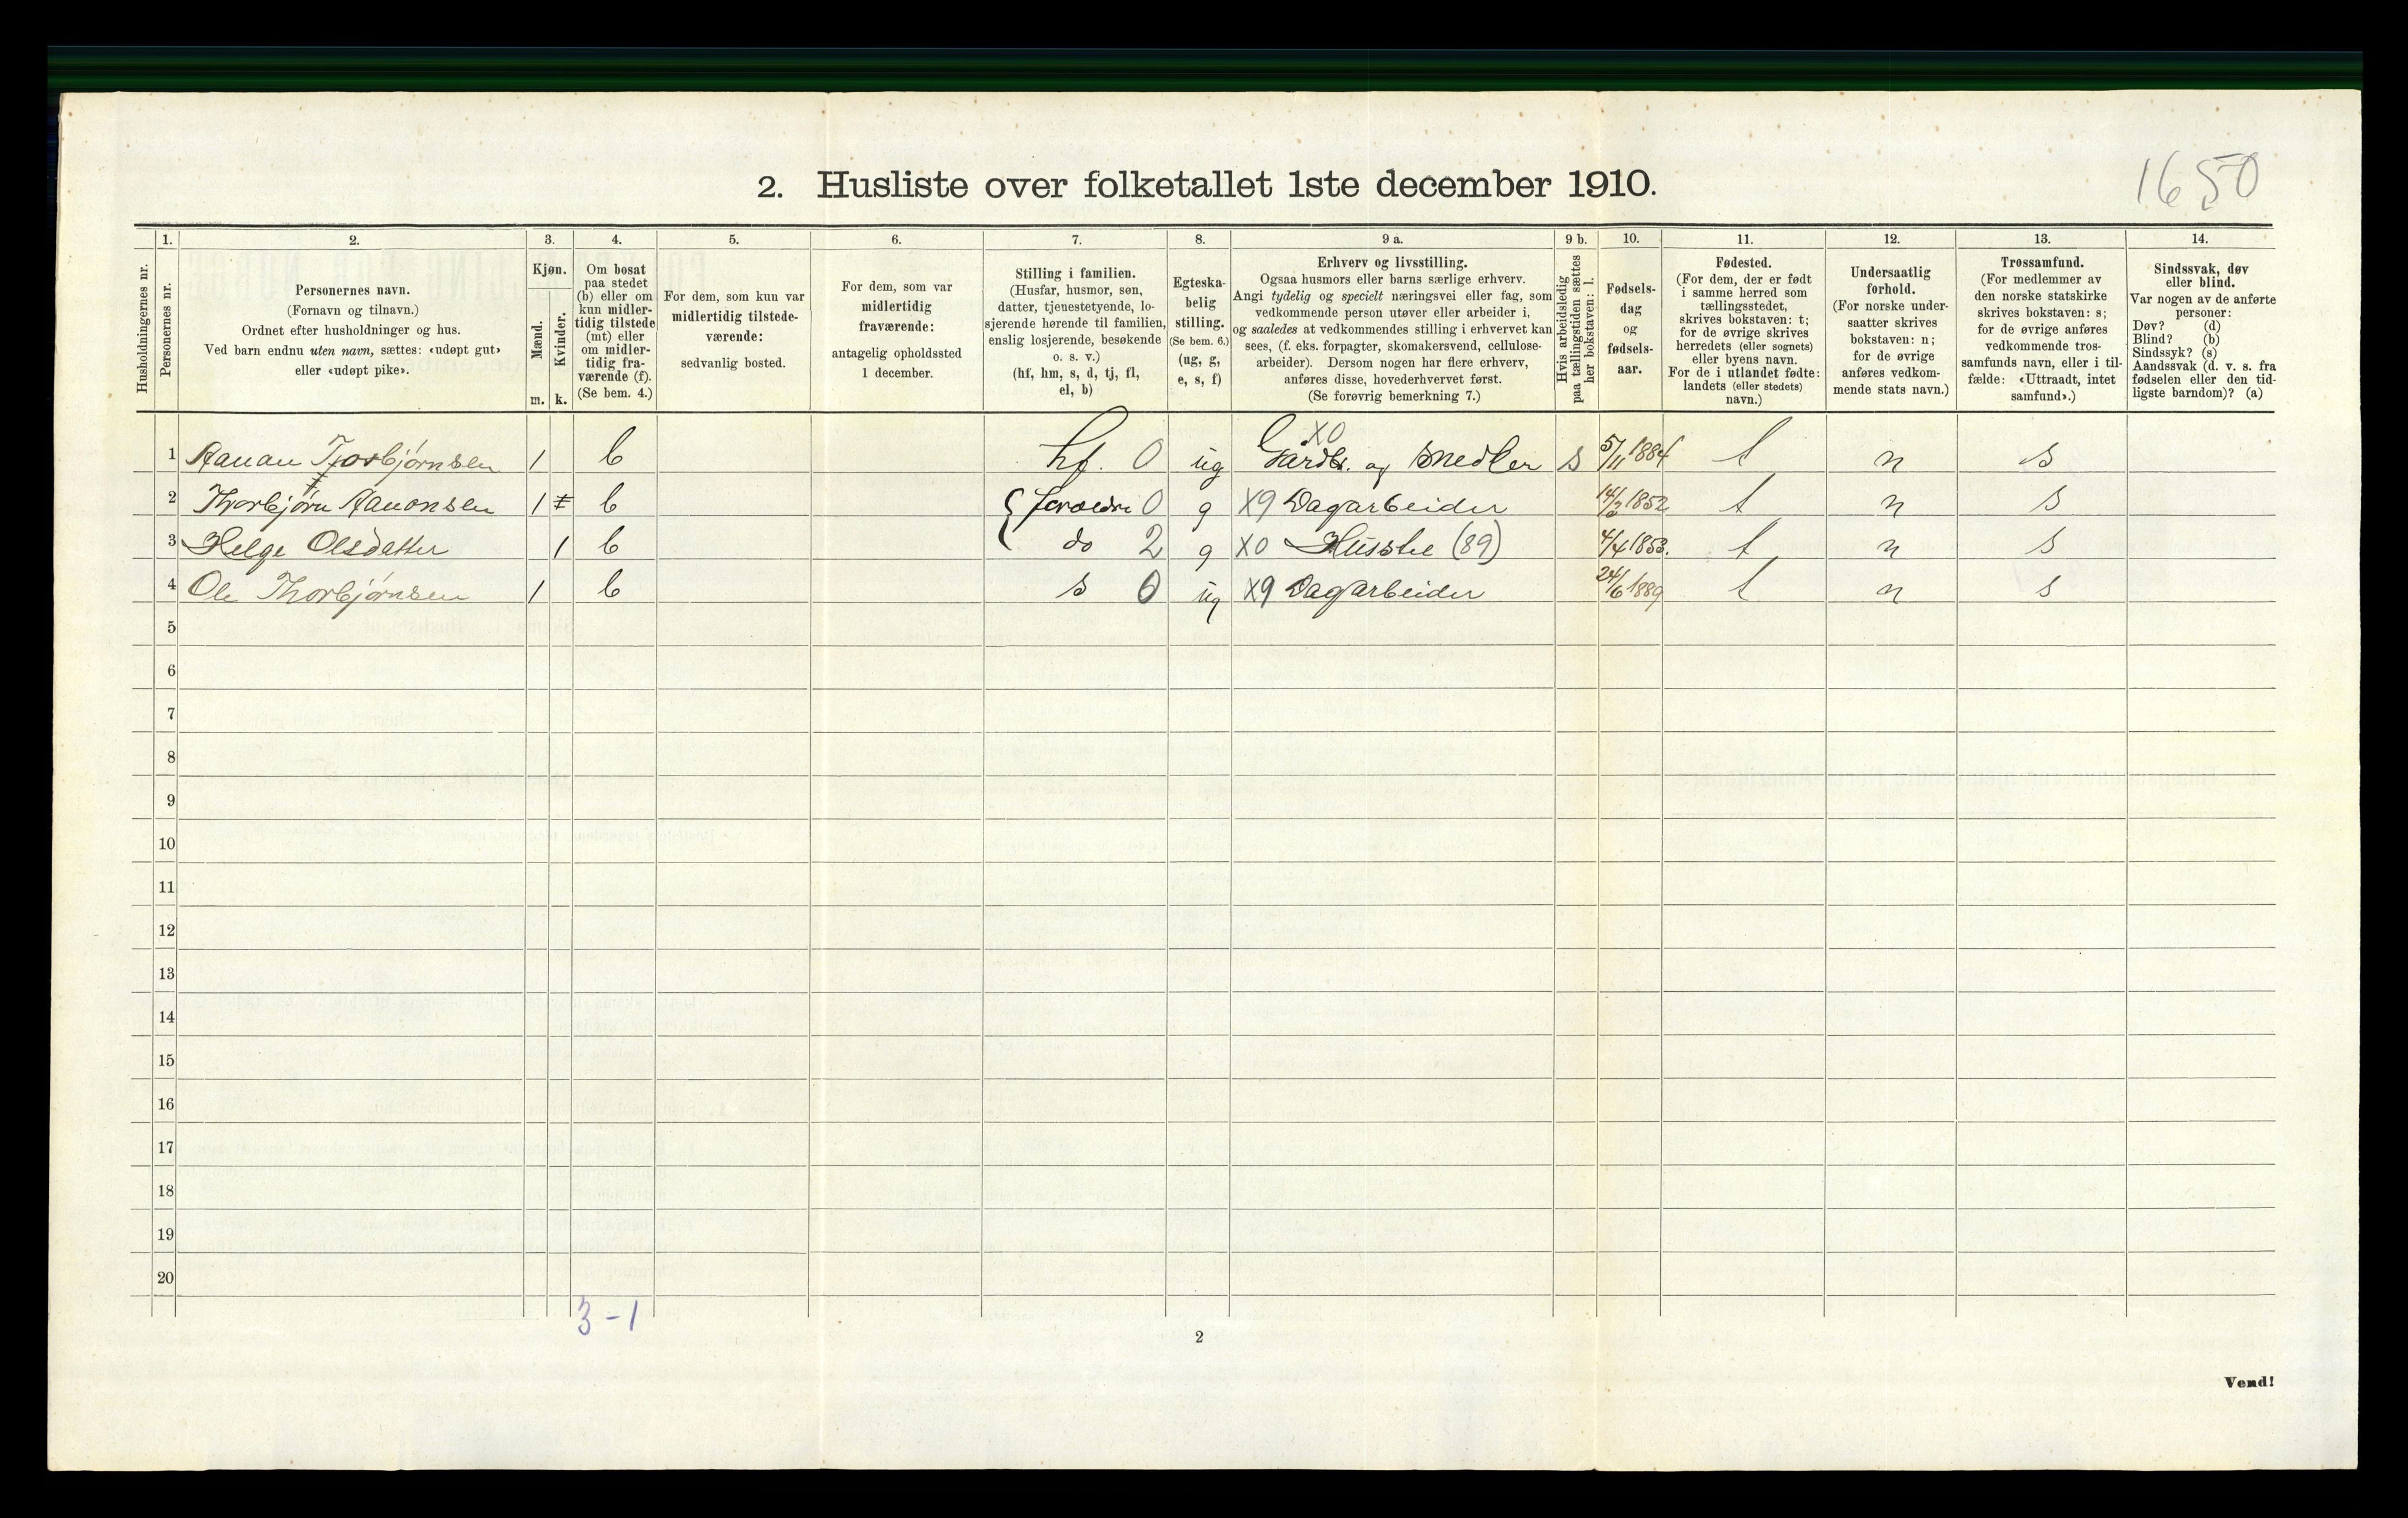 1650
2. Husliste over folketallet 1ste december 1910.
Husholdningernes nr.
1.
Personernes nr.
2.
Personernes navn.
(Fornavn og tilnavn.)
Ordnet efter husholdninger og hus.
Ved barn endnu uten navn, sættes: «udøpt gut»
eller «udøpt pike».
3.
Kjøn.
Mænd.
Kvinder.
m. k.
4.
Om bosat
paa stedet
(b) eller om
kun midler-
tidig tilstede
(mt) eller
om midler-
tidig fra-
værende (f).
(Se bem. 4.)
5.
For dem, som kun var
midlertidig tilstede-
værende:
sedvanlig bosted.
6.
For dem, som var
midlertidig
fraværende:
antagelig opholdssted
1 december.
7.
Stilling i familien.
(Husfar, husmor, søn,
datter, tjenestetyende, lo-
sjerende hørende til familien,
enslig losjerende, besøkende
o. s. v.)
(hf, hm, s, d, tj, fl,
el, b)
8.
Egteska-
belig
stilling.
(Se bem. 6.)
(ug, g,
e, s, f)
9 a.
Erhverv og livsstilling.
Ogsaa husmors eller barns særlige erhverv.
Angi tydelig og specielt næringsvei eller fag, som
vedkommende person utøver eller arbeider i,
og saaledes at vedkommendes stilling i erhvervet kan
sees, (f. eks. forpagter, skomakersvend, cellulose-
arbeider). Dersom nogen har flere erhverv,
anføres disse, hovederhvervet først.
(Se forøvrig bemerkning 7.)
9 b.
Hvis arbeidsledig
paa tællingstiden sættes
her bokstaven: l.
10.
Fødsels-
dag
og
fødsels-
aar.
11.
Fødested.
(For dem, der er født
i samme herred som
tællingsstedet,
skrives bokstaven: t;
for de øvrige skrives
herredets (eller sognets)
eller byens navn.
For de i utlandet fødte:
landets (eller stedets)
navn.)
12.
Undersaatlig
forhold.
(For norske under-
saatter skrives
bokstaven: n;
for de øvrige
anføres vedkom-
mende stats navn.)
13.
Trossamfund.
(For medlemmer av
den norske statskirke
skrives bokstaven: s;
for de øvrige anføres
vedkommende tros-
samfunds navn, eller i til-
fælde: «Uttraadt, intet
samfund».)
14.
Sindssvak, døv
eller blind.
Var nogen av de anførte
personer:
Døv? (d)
Blind? (b)
Sindssyk? (s)
Aandssvak (d. v. s. fra
fødselen eller den tid-
ligste barndom)? (a)
X0
1 Aanan Torbjørnsen 1 b hf. 0 ug Gardbr. og Snedker s 5/11 1884 t n s
2 Thorbjørn Aanonsen 1 b foreldre 0 g X9 Dagarbeider 14/2 1852 t n s
3 Helge Olsdatter 1 b do 2 g X0 Husstel (89) 4/4 1853. t n s
4 Ole Thorbjørnsen 1 b s 0 ug X9 Dagarbeider 24/6 1889 t n s
5
6
7
8
9
10
11
12
13
14
15
16
17
18
19
20
3-1
2
Vend!